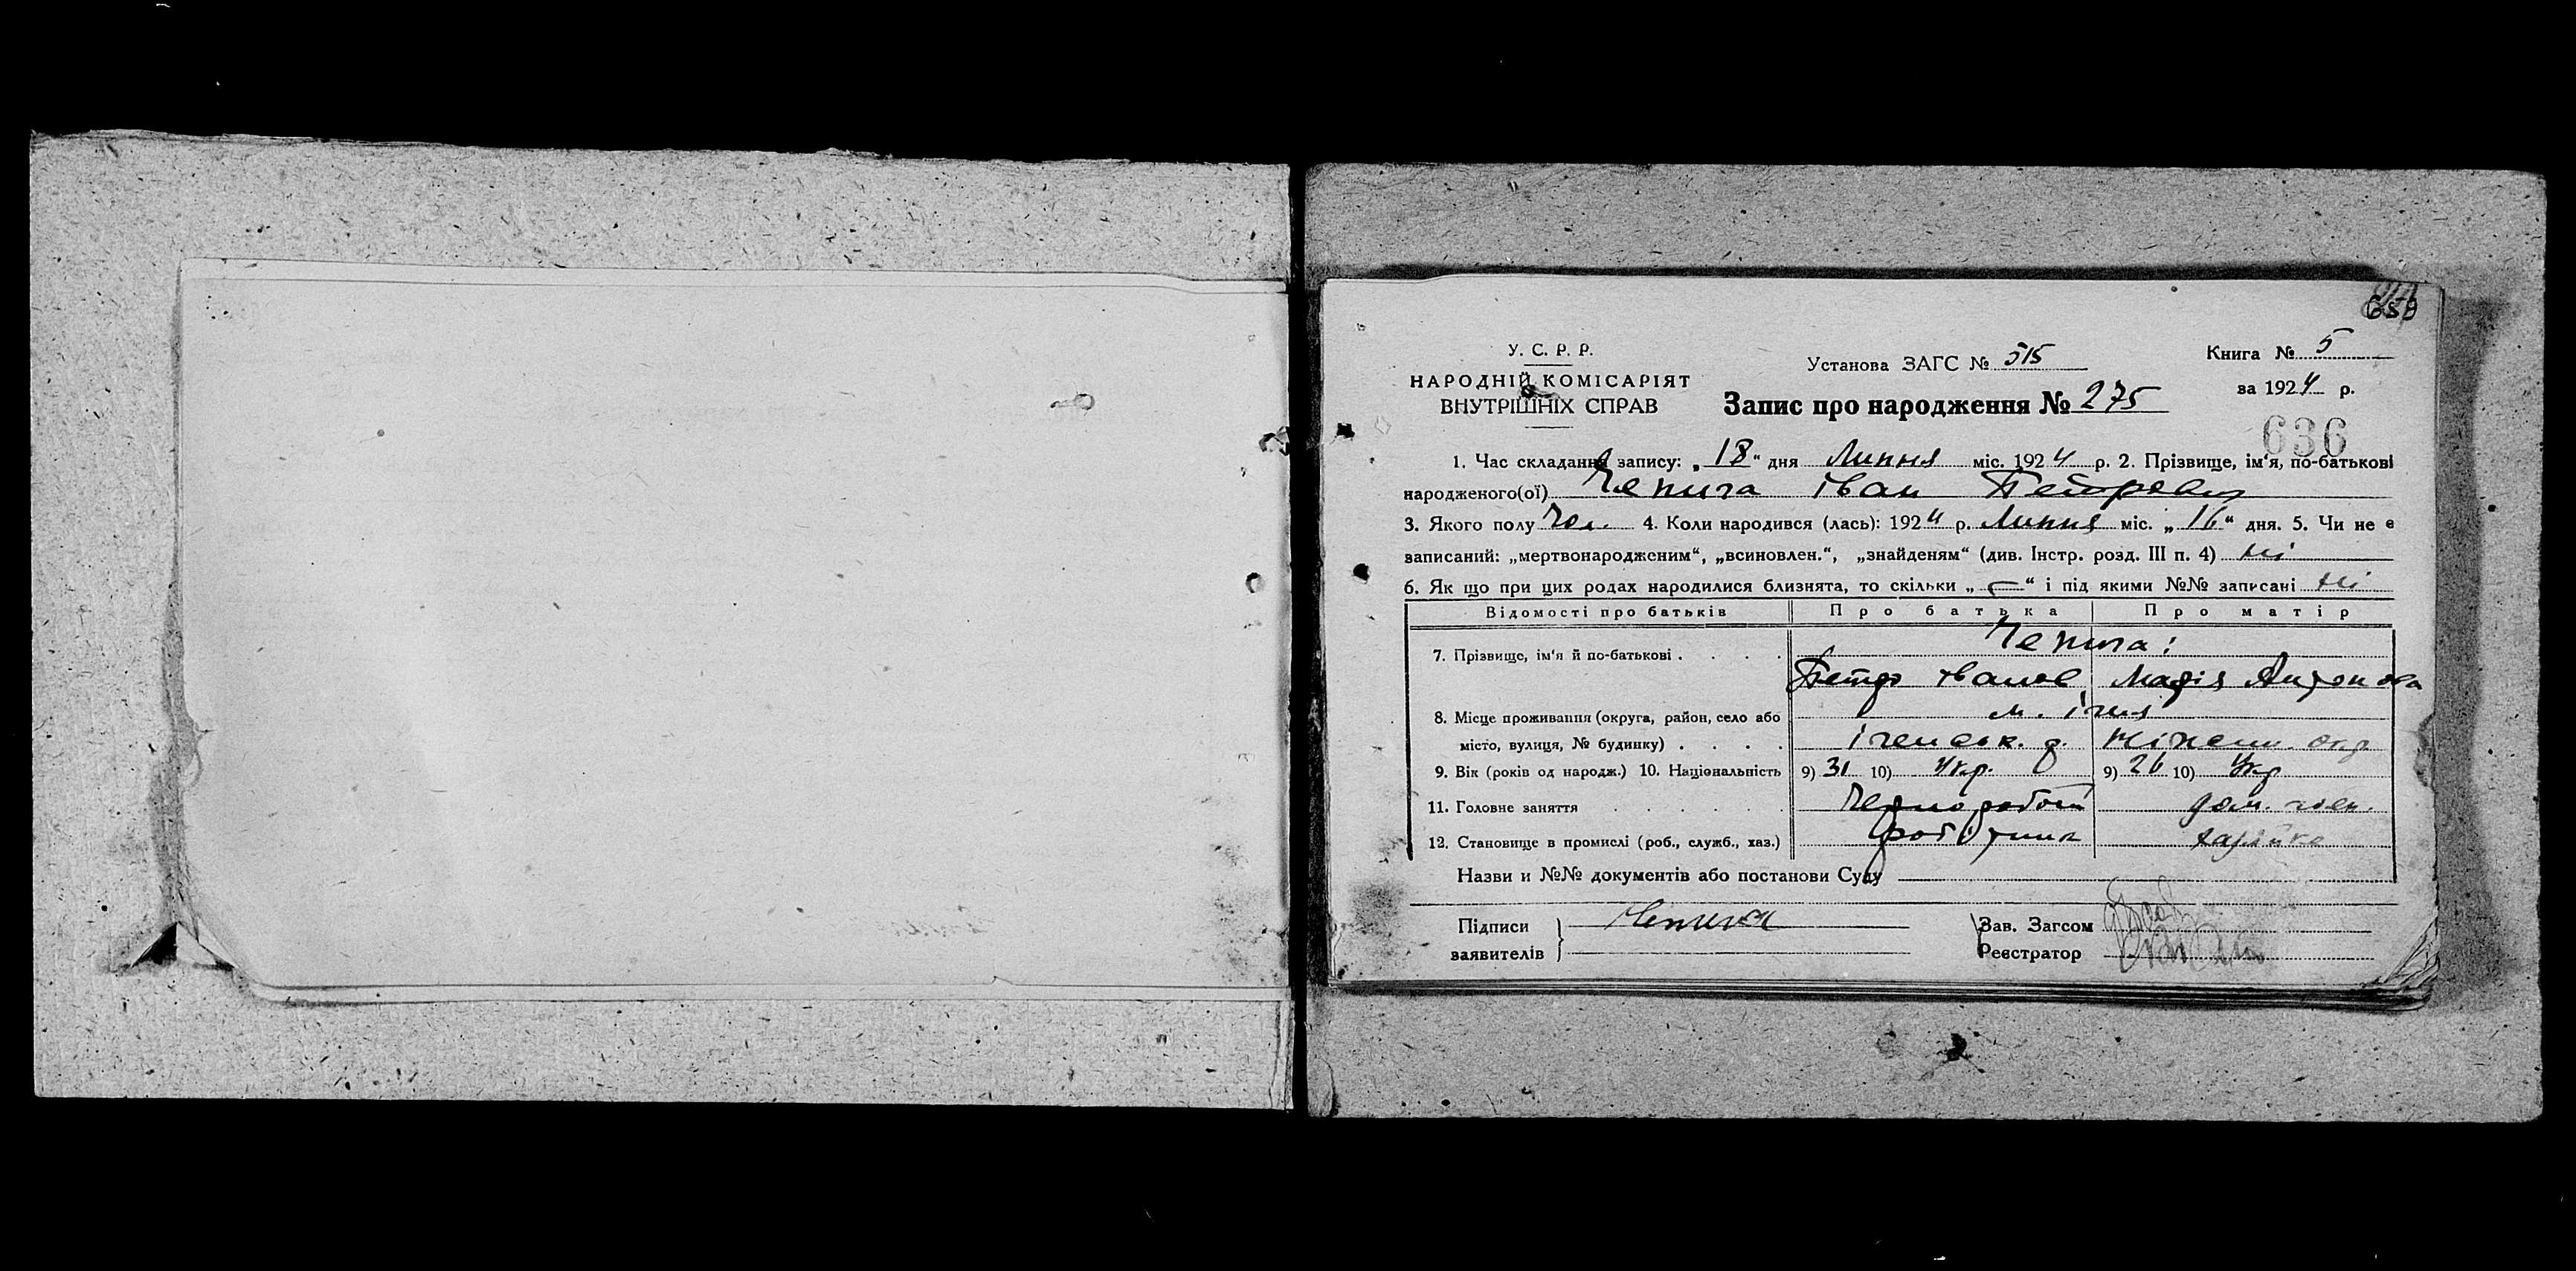 659
У. С. Р. Р.
НАРОДНІЙ КОМІСАРІЯТ
ВНУТРІШНІХ СПРАВ
Установа ЗАГС № 515
Книга № 5
за 1924 р.
Запис про народження № 275
636
1. Час складання запису: „18" дня Липня міс. 1924 р. 2. Прізвище, ім'я, по-батькові
народженого(ої) Чепига Іван Петрович
3. Якого полу Чол. 4. Коли народився (лась): 1924 р. Липня міс. „16" дня. 5. Чи не є
записаний: „мертвонародженим", „всиновлен.", „знайденям" (див. Інстр. розд. III п. 4) Ні
6. Як що при цих родах народилися близнята, то скільки „—" і під якими №№ записані Ні
Відомості про батьків Про батька Про матір
7. Прізвище, ім'я й по-батькові . . . . Чепига:
Петро Іванов Марія Антонова
8. Місце проживання (округа, район, село або м. Ічня
місто, вулиця, № будинку) . . . . Іченськ. р. Ніженш. окр
9. Вік (років од народж.) 10. Національність 9) 31 10) Укр. 9) 26 10) Укр
11. Головне заняття . . . . . . Чернороботи дом. госп.
12. Становище в промислі (роб., служб., хаз.) робітник хазяйка
Назви и №№ документів або постанови Суду
Підписи Чепига Зав. Загсом
заявителів Реєстратор